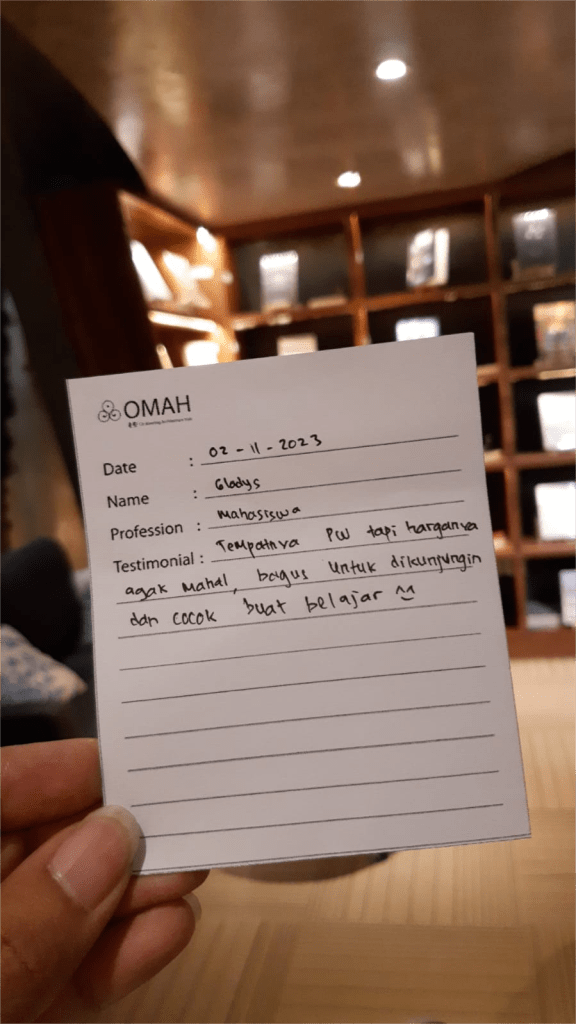 OMAH
Date : 02 - 11 - 2023
Name : Gladys
Profession : Mahasiswa
Testimonial : Tempatnya PW tapi harganya
agak Mahal, bagus untuk dikunjungin
dan cocok buat belajar ^⌣^